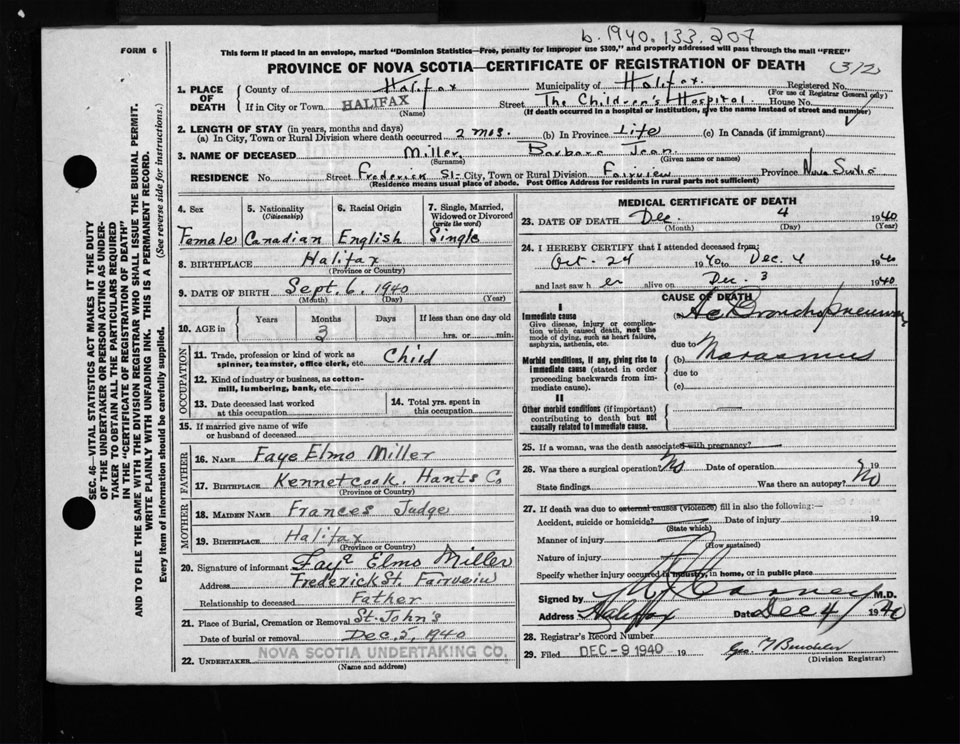 b. 1940. 133. 207
FORM 6
This form if placed in an envelope, marked "Dominion Statistics—Free, penalty for improper use $300," and properly addressed will pass through the mail "FREE"
PROVINCE OF NOVA SCOTIA—CERTIFICATE OF REGISTRATION OF DEATH
(312)
1. PLACE OF DEATH
County of Halifax Municipality of Halifax. Registered No.
(For use of Registrar General only)
If in City or Town HALIFAX Street The Children's Hospital. House No.
(Name) (If death occurred in a hospital or institution, give the name instead of street and number)
2. LENGTH OF STAY (in years, months and days)
(a) In City, Town or Rural Division where death occurred 2 mos. (b) In Province Life (c) In Canada (if immigrant)
3. NAME OF DECEASED Miller, Barbara Jean
(Surname) (Given name or names)
RESIDENCE No. Street Frederick St- City, Town or Rural Division Fairview Province Nova Scotia
(Residence means usual place of abode. Post Office Address for residents in rural parts not sufficient)
4. Sex
Female
5. Nationality
(Citizenship)
Canadian
6. Racial Origin
English
7. Single, Married, Widowed or Divorced
(write the word)
Single
8. BIRTHPLACE Halifax
(Province or Country)
9. DATE OF BIRTH Sept. 6, 1940
(Month) (Day) (Year)
10. AGE in
Years Months Days If less than one day old
3 hrs. or min.
OCCUPATION
11. Trade, profession or kind of work as Child
spinner, teamster, office clerk, etc.
12. Kind of industry or business, as cotton-
mill, lumbering, bank, etc.
13. Date deceased last worked
at this occupation
14. Total yrs. spent in
this occupation
15. If married give name of wife
or husband of deceased
FATHER
16. NAME Faye Elmo Miller
17. BIRTHPLACE Kennetcook. Hants Co
(Province or Country)
MOTHER
18. MAIDEN NAME Frances Judge
19. BIRTHPLACE Halifax
(Province or Country)
20. Signature of informant Faye Elmo Miller
Address Frederick St. Fairveiw
Relationship to deceased Father
21. Place of Burial, Cremation or Removal St. John's
Date of burial or removal Dec. 5, 1940
22. UNDERTAKER NOVA SCOTIA UNDERTAKING CO.
(Name and address)
MEDICAL CERTIFICATE OF DEATH
23. DATE OF DEATH Dec. 4 1940
(Month) (Day) (Year)
24. I HEREBY CERTIFY that I attended deceased from:
Oct- 24 1940 to Dec. 4 1940
and last saw h er alive on Dec. 3 1940
CAUSE OF DEATH
I
Immediate cause
Give disease, injury or complica-
tion which caused death, not the
mode of dying, such as heart failure,
asphyxia, asthenia, etc.
(a) Ac Bronchopneumonia
due to
Morbid conditions, if any, giving rise to
immediate cause (stated in order
proceeding backwards from im-
mediate cause).
(b) Marasmus
due to
(c)
II
Other morbid conditions (if important)
contributing to death but not
causally related to immediate cause.
25. If a woman, was the death associated with pregnancy?
26. Was there a surgical operation? No Date of operation 19
State findings Was there an autopsy? No
27. If death was due to external causes (violence) fill in also the following:—
Accident, suicide or homicide? Date of injury 19
(State which)
Manner of injury
(How sustained)
Nature of injury
Specify whether injury occurred in industry, in home, or in public place
Signed by M.D.
Address Halifax Date Dec 4 1940
28. Registrar's Record Number
29. Filed DEC -9 1940 19 Geo.
(Division Registrar)
SEC. 46—VITAL STATISTICS ACT MAKES IT THE DUTY
OF THE UNDERTAKER OR PERSON ACTING AS UNDER-
TAKER TO OBTAIN ALL THE PARTICULARS REQUIRED
IN THE "CERTIFICATE OF REGISTRATION OF DEATH"
AND TO FILE THE SAME WITH THE DIVISION REGISTRAR WHO SHALL ISSUE THE BURIAL PERMIT.
WRITE PLAINLY WITH UNFADING INK. THIS IS A PERMANENT RECORD.
Every item of information should be carefully supplied. (See reverse side for instructions.)